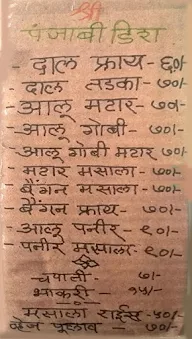 श्री
पंजाबी डिश
- दाल फ्राय - ६०/-
- दाल तडका - ७०/-
- आलू मटार - ७०/-
- आलू गोबी - ७०/-
- आलू गोबी मटार ७०/-
- मटार मसाला - ७०/-
- बैंगन मसाला - ७०/-
- बैंगन फ्राय - ७०/-
- आलू पनीर - ८०/-
- पनीर मसाला - ८०/-
- चपाती - ७/-
- भाकरी - १५/-
मसाला राईस - ५०/-
व्हेज पूलाव - ७०/-